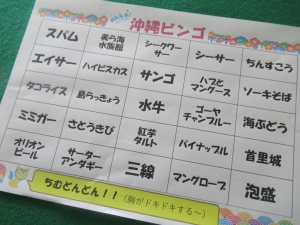 みんなで！
沖縄ビンゴ
スパム
美ら海
水族館
シークワー
サー
シーサー
ちんすこう
エイサー
ハイビスカス
サンゴ
ハブと
マングース
ソーキそば
タコライス
島らっきょう
水牛
ゴーヤ
チャンプルー
海ぶどう
ミミガー
さとうきび
紅芋
タルト
パイナップル
首里城
オリオン
ビール
サーター
アンダギー
三線
マングローブ
泡盛
ちむどんどん！！（胸がドキドキする～）